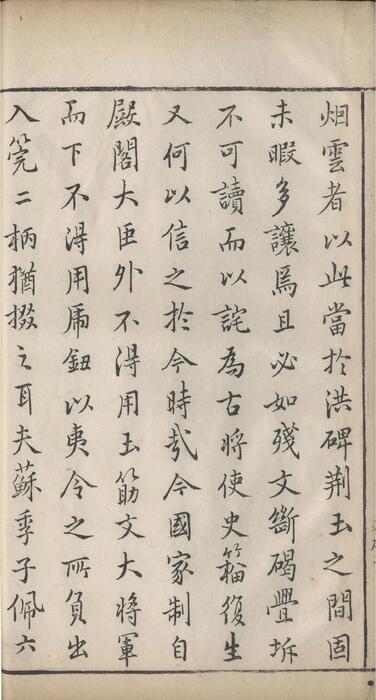 烟雲者以此當於洪碑荆玉之間固
未暇多讓焉且必如殘文斷碣疊坼
不可讀而以詫為古將使史籕復生
又何以信之於今時哉今國家制自
殿閣大臣外不得用玉筯文大將軍
而下不得用虎鈕以夷令之所負出
入筦二柄猶掇之耳夫蘇季子佩六